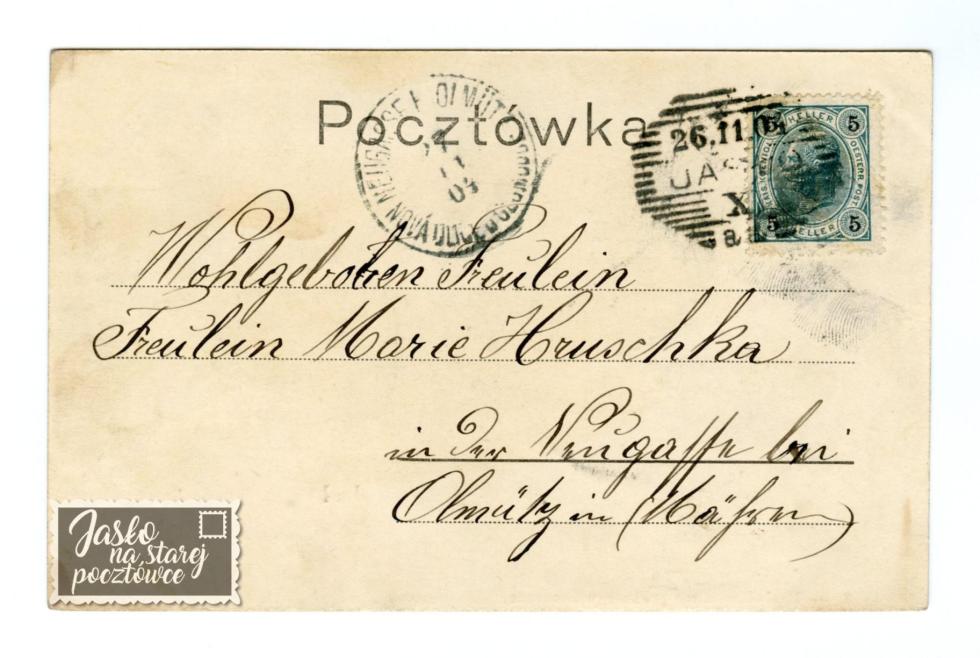 Pocztówka
NEUGASSE B. OLMÜTZ
NOVÁ ULICE
04
26.11.04
JAS
X
a
5 HELLER 5
KAIS. KOENIGL. OESTERR. POST
5 HELLER 5
Wohlgeboren Freulein
Freulein Marie Hruschka
in der Neugasse bei
Olmütz in (Mähren)
Jasło
na starej
pocztówce